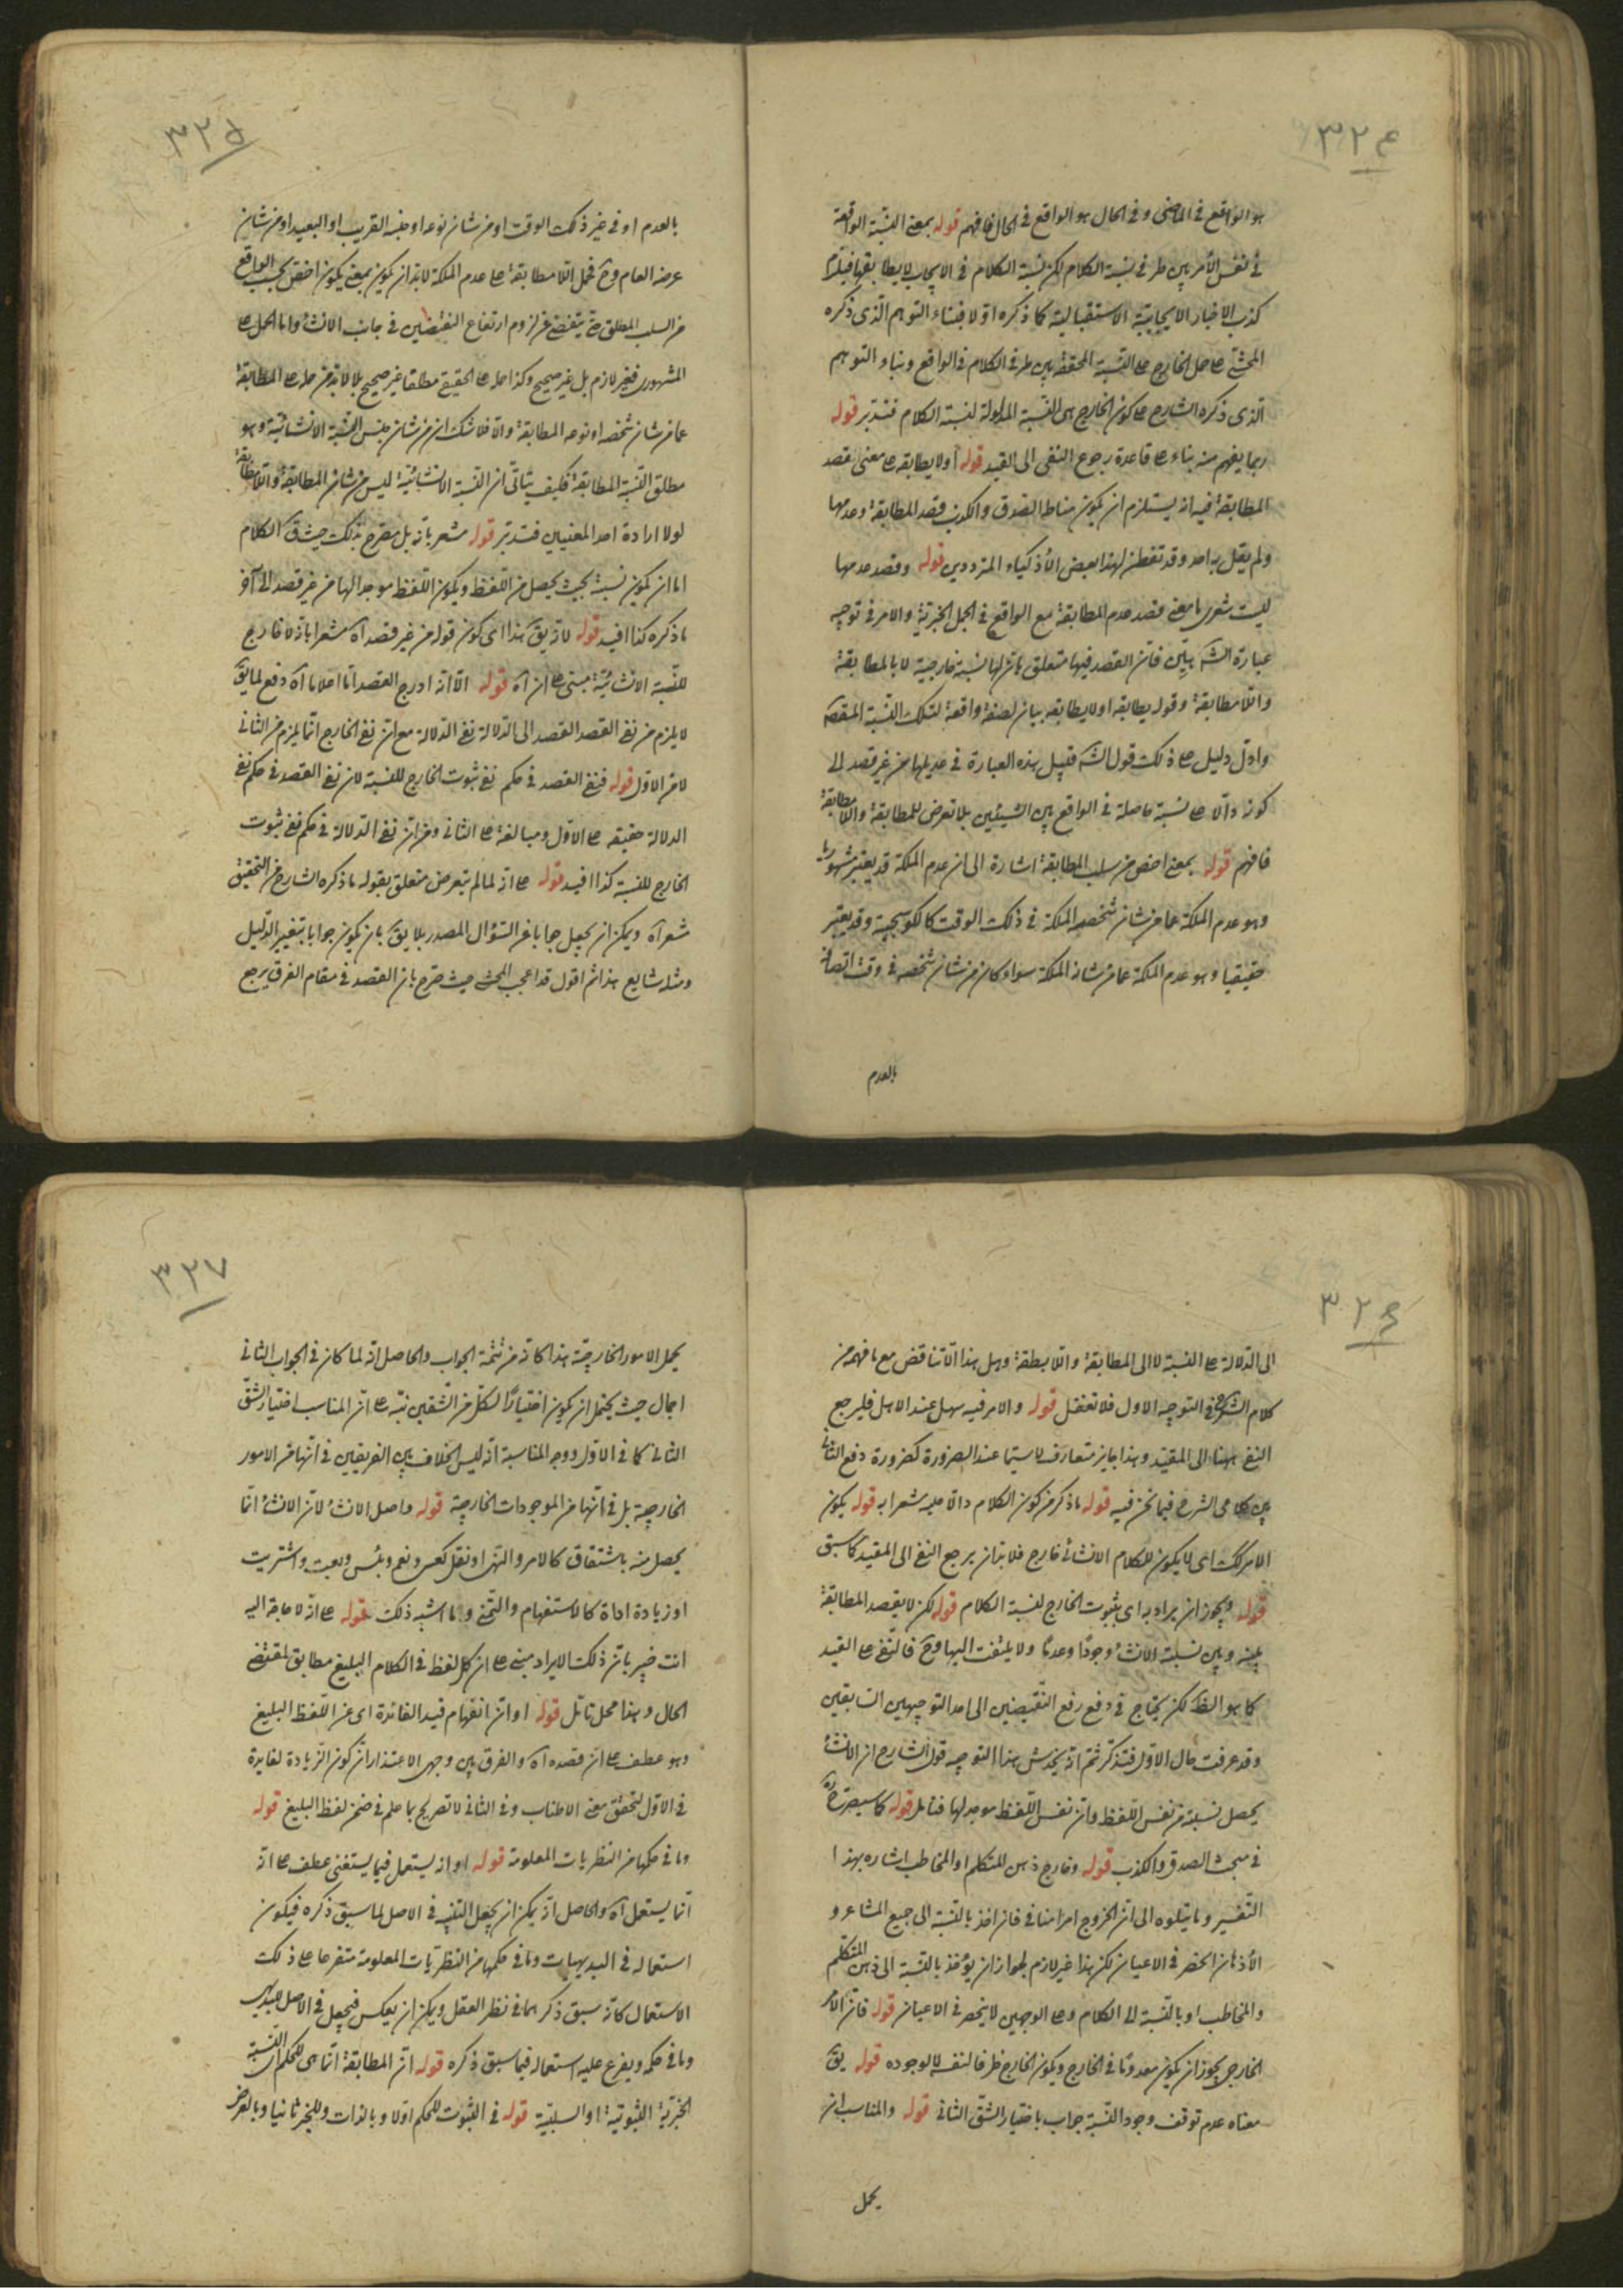 ٣٢٤
هو الواقع في الماضى وفى الحال هو الواقع في الحال فافهم قوله بمعنى النسبة الواقعة
في نفس الأمر بين طرفى نسبة الكلام لكن نسبة الكلام في الايجاب لا يطابقها فيلزم
كذب الاخبار الايجابية الاستقبالية كما ذكره اولا فمنشاء التوهم الذى ذكره
المحشى على حمل الخارج على النسبة المحققة بين طرفى الكلام في الواقع وبناء التوهم
الذى ذكره الشارح على كون الخارج هى النسبة المدلولة لنسبة الكلام فتدبر قوله
ربما يفهم منه بناء على قاعدة رجوع النفى الى القيد قوله أو لا يطابقه على معنى قصد
المطابقة فيه انه يستلزم ان يكون مناط الصدق والكذب قصد المطابقة وعدمها
ولم يقل به احد وقد تفطن لهذا بعض الأذكياء المترددين قوله وقصد عدمها
ليت شعرى ما معنى قصد عدم المطابقة مع الواقع في الجمل الخبرية والامر في توجيه
عبارة الشه بيّن فان القصد فيها متعلق بان لها نسبة خارجية لا بالمطابقة
واللامطابقة وقوله يطابقه او لا يطابقه بيان لصفة واقعة لتلك النسبة المقصه
وادل دليل على ذلك قول الشه قبيل هذه العبارة في عديلها من غير قصد الى
كونه دالا على نسبة حاصلة في الواقع بين الشيئين بلا تعرض للمطابقة واللامطابقة
فافهم قوله بمعنى اخص من سلب المطابقة اشارة الى ان عدم الملكة قد يعتبر مشهوريا
وهو عدم الملكة عما من شان شخصه الملكة في ذلك الوقت كالكوسجية وقد يعتبر
حقيقيا وهو عدم الملكة عما من شانه الملكة سواء كان من شان شخصه في وقت اتصافه
بالعدم
٣٢٥
بالعدم او في غير ذلك الوقت او من شان نوعه او جنسه القريب او البعيد او من شان
عرضه العام وح فحمل اللامطابقة على عدم الملكة لا بد ان يكون بمعنى يكون اخص بحسب الواقع
من السلب المطلق حتى يتفصى عن لزوم ارتفاع النقيضين في جانب الانشاء واما الحمل على
المشهورى فغير لازم بل غير صحيح وكذا حمله على الحقيقى مطلقا غير صحيح بل لا بد من حمله على المطابقة
عما من شان شخصه او نوعه المطابقة والا فلا شك ان من شان جنس النسبة الانشائية وهو
مطلق النسبة المطابقة فكيف يتأتى ان النسبة الانشائية ليس من شانه المطابقة واللامطابقة
لولا ارادة احد المعنيين فتدبر قوله مشعر بانه بل مصرح بذلك حيث ق الكلام
اما ان يكون نسبة بحيث يحصل من اللفظ ويكون اللفظ موجدا لها من غير قصد الى آخر
ما ذكره كذا افيد قوله لانه يق هذا اى كون قوله من غير قصد آه مشعرا بانه لا خارج
للنسبة الانشائية مبنى على ان آه قوله الا انه ادرج القصد انا اعلاما آه دفع لما يق
لا يلزم من نفى القصد القصد الى الدلالة نفى الدلالة مع ان نفى الخارج انما يلزم من الثانى
لا من الاول قوله فنفى القصد في حكم نفى ثبوت الخارج للنسبة لان نفى القصد في حكم نفى
الدلالة حقيقه على الاول ومبالغة على الثانى ومن ان نفى الدلالة في حكم نفى ثبوت
الخارج للنسبة كذا افيد قوله على انه لما لم يتعرض متعلق بقوله ما ذكره الشارح من التحقيق
شعر آه ويمكن ان يجعل جوابا عن السؤال المصدر بلا يق بان يكون جوابا بتغيير الدليل
ومثله شايع هذا ثم اقول قد اعجب المحشى حيث صرح بان القصد في مقام الفرق يرجع
٣٢٦
الى الدلالة على النسبة لا الى المطابقة واللامطابقة وهل هذا الا تناقض مع ما فهمه من
كلام الشارح في التوجيه الاول فلا تغفل قوله والامر فيه سهل عند الاهل فليرجع
النفى ههنا الى المقيد وهذا جايز متعارف لا سيما عند الضرورة كضرورة دفع التنافى
بين كلامى الشرح فيما نحن فيه قوله ما ذكر من كون الكلام دالا عليه شعرا به قوله يكون
الامر كك اى لا يكون للكلام الانشائى خارج فلا بد ان يرجع النفى الى المقيد كما سبق
قوله ويجوز ان يراد به اى بثبوت الخارج لنسبة الكلام قوله لكن لا يقصد المطابقة
بينه وبين نسبة الانشاء وجودًا وعدمًا ولا يلتفت اليها وح فالنفى على القيد
كما هو الظ لكن يحتاج في دفع رفع النقيضين الى احد التوجيهين السابقين
وقد عرفت حال الاول فتذكر ثم انه يخدش هذا التوجيه قول الشارح ان الانشاء
يحصل نسبة من نفس اللفظ وان نفس اللفظ موجد لها فتامل قوله كما سيصرح به
في مبحث الصدق والكذب قوله وخارج ذهن المتكلم او المخاطب اشاره بهذا
التفسير وما يتلوه الى ان الخروج امر اضافى فان اخذ بالنسبة الى جميع المشاعر و
الأذهان انحصر في الاعيان لكن هذا غير لازم لجواز ان يؤخذ بالنسبة الى ذهن المتكلم
والمخاطب او بالنسبة الى الكلام وعلى الوجهين لا ينحصر في الاعيان قوله فان الأمر
الخارجى يجوز ان يكون معدومًا في الخارج ويكون الخارج ظرفا لنفسه لا لوجوده قوله يق
معناه عدم توقف وجود النسبة جواب باختيار الشق الثانى قوله والمناسب ان
يحمل
٣٢٧
يحمل الامور الخارجية هذا كانه من تتمة الجواب والحاصل انه لما كان في الجواب الثانى
اجمال حيث يحتمل ان يكون اختيارًا لكل من الشقين نبه على ان المناسب اختيار الشق
الثانى كما في الاول ووجه المناسبة انه ليس الخلاف بين الفريقين في انها من الامور
الخارجية بل في انها من الموجودات الخارجية قوله واصل الانشاء لان الانشاء انما
يحصل منه باشتقاق كالامر والنهى او نقل كعسى ونعم وبئس وبعت واشتريت
او زيادة اداة كالاستفهام والتمنى وما اشبه ذلك قوله على انه لا حاجة اليه
انت خبير بان ذلك الايراد مبنى على ان كل لفظ في الكلام البليغ مطابق لمقتضى
الحال وهذا محل تامّل قوله او ان انفهام قيد الفائدة اى من اللفظ البليغ
وهو عطف على ان قصده آه والفرق بين وجهى الاعتذار ان كون الزيادة لفايدة
في الاول لتحقق معنى الاطناب وفى الثانى لا تصريح بما علم في ضمن لفظ البليغ قوله
وما في حكمها من النظريات المعلومة قوله او انه يستعمل فيما يستغنى عطف على انه
انما يستعمل آه والحاصل انه يمكن ان يجعل التنبيه في الاصل لما سبق ذكره فيكون
استعماله في البديهيات وما في حكمها من النظريات المعلومة متفرعا على ذلك
الاستعمال كانه سبق ذكرهما في نظر العقل ويمكن ان يعكس فيجعل في الاصل للبديهى
وما في حكمه ويفرع عليه استعماله فيما سبق ذكره قوله ان المطابقة انما هى للحكم اى النسبة
الخبرية الثبوتية او السلبية قوله في الثبوت للحكم اولا وبالذات وللخبر ثانيا وبالعرض